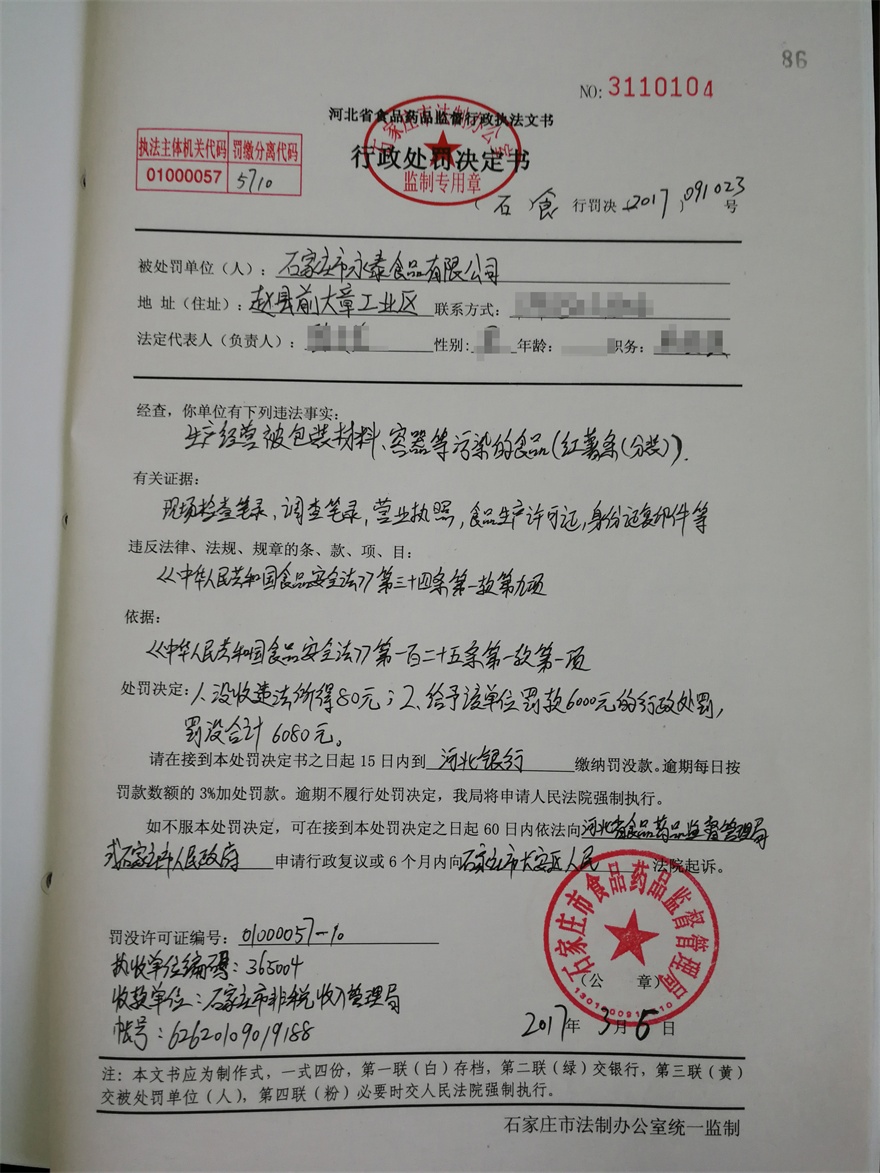 86
NO:3110104
河北省食品药品监督行政执法文书
石家庄市法制办公室
监制专用章
行政处罚决定书
执法主体机关代码 罚缴分离代码
01000057 5710
(石)食 行罚决(2017)091023号
被处罚单位（人）：石家庄市永泰食品有限公司
地 址（住址）：赵县前大章工业区 联系方式：
法定代表人（负责人）： 性别: 年龄： 职务：
经查，你单位有下列违法事实：
生产经营被包装材料、容器等污染的食品(红薯条(分装)).
有关证据：
现场检查笔录,调查笔录,营业执照,食品生产许可证,身份证复印件等
违反法律、法规、规章的条、款、项、目：
《中华人民共和国食品安全法》第三十四条第一款第九项
依据：
《中华人民共和国食品安全法》第一百二十五条第一款第一项
处罚决定：1、没收违法所得80元；2、给予该单位罚款6000元的行政处罚，
罚没合计6080元。
请在接到本处罚决定书之日起 15 日内到 河北银行 缴纳罚没款。逾期每日按
罚款数额的 3%加处罚款。逾期不履行处罚决定，我局将申请人民法院强制执行。
如不服本处罚决定，可在接到本处罚决定之日起 60 日内依法向河北省食品药品监督管理局
或石家庄市人民政府 申请行政复议或 6 个月内向石家庄市长安区人民 法院起诉。
罚没许可证编号：01000057-10
执收单位编码：365004
收款单位：石家庄市非税收入管理局
帐号：62620109019188
石家庄市食品药品监督管理局
（公 章）
2017年3月6日
注：本文书应为制作式，一式四份，第一联（白）存档，第二联（绿）交银行，第三联（黄）
交被处罚单位（人），第四联（粉）必要时交人民法院强制执行。
石家庄市法制办公室统一监制